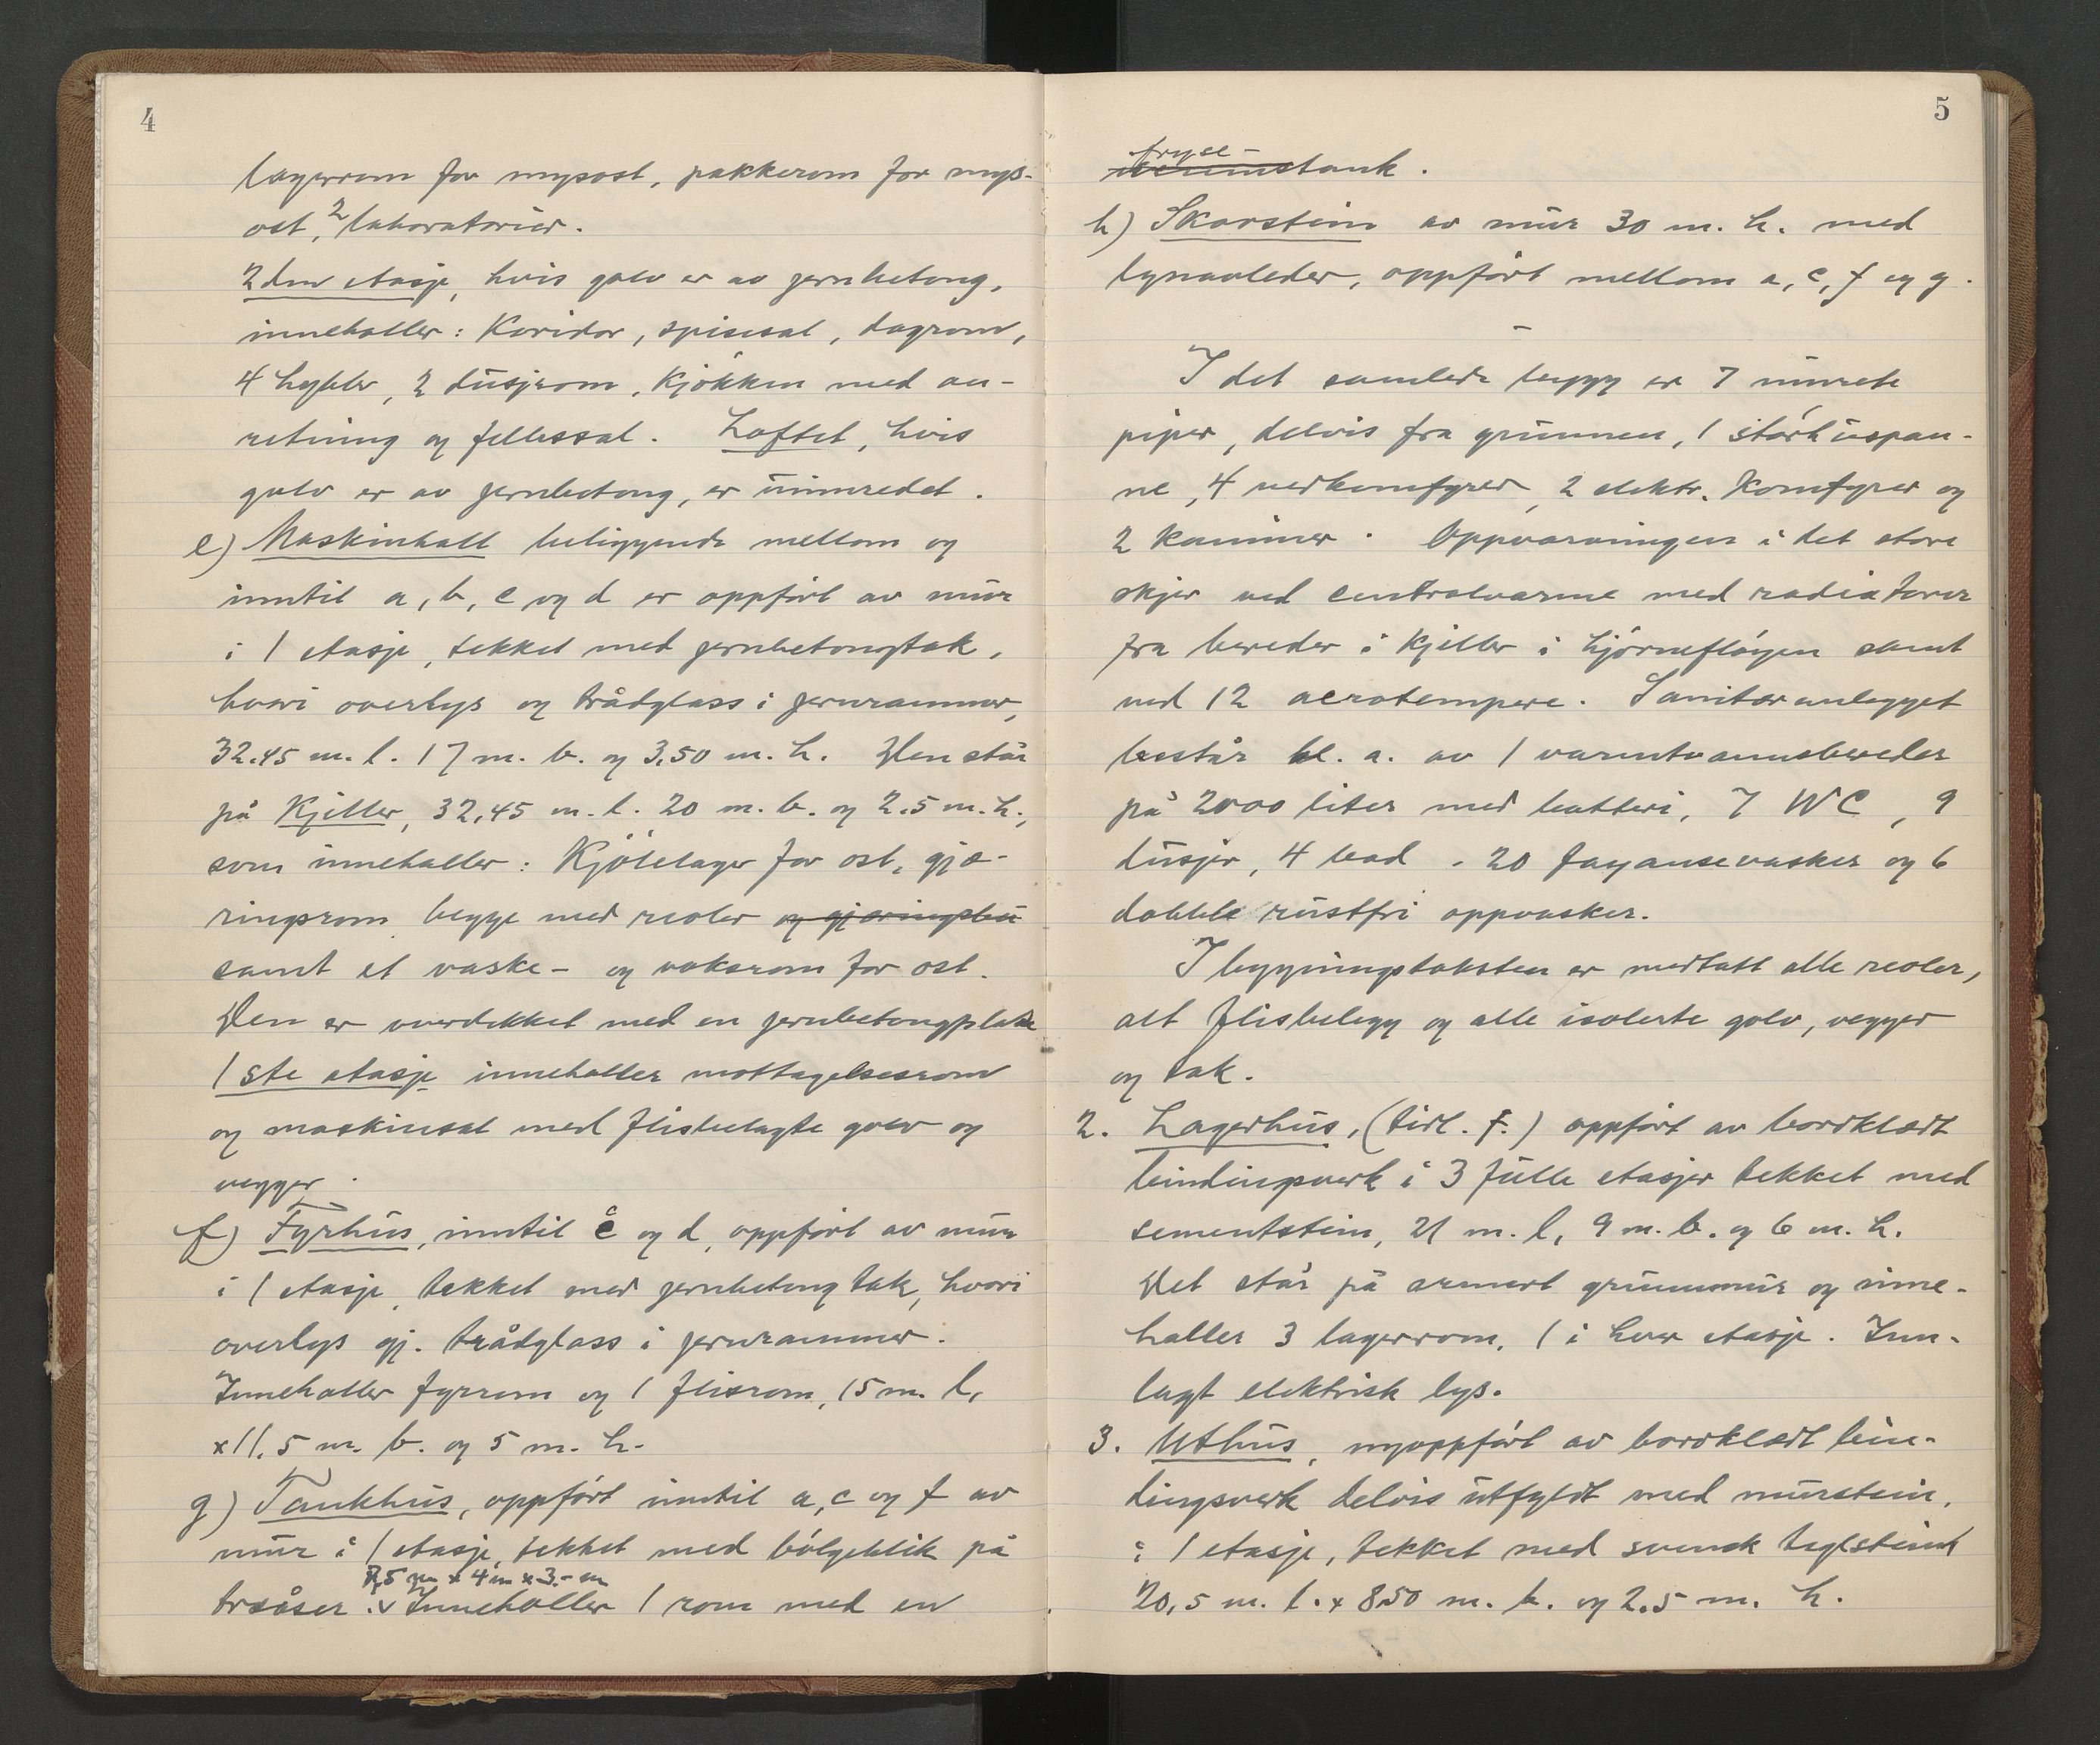 4
lagerrom for mysost, pakkerom for mys-
ost, 2 laboratorier.
2den etasje, hvis golv er av jernbetong,
inneholder: Koridor, spisesal, dagrom,
4 hybler, 2 dusjrom, kjøkken med an-
retning og fellessal. Loftet, hvis
golv er av jernbetong, er uinnredet.
e) Maskinhall beliggende mellom og
inntil a, b, c og d er oppført av mur
i 1 etasje, tekket med jernbetongtak,
hvori overlys og trådglass i jernrammer,
32.45 m. l. 17 m. b. og 3.50 m. h. Den står
på Kjeller, 32,45 m. l. 20 m. b. og 2.5 m. h.,
som inneholler: Kjølelager for ost, gjæ-
ringsrom, begge med reoler og gjæringsbu
samt et vaske- og voksrom for ost.
Den er overdekket med en jernbetongplate
1ste etasje inneholler mottagelsesrom
og maskinsal med flisbelagte golv og
vegger.
f) Fyrhus, inntil c og d, oppført av mur
i 1 etasje, tekket med jernbetongtak, hvori
overlys gj. trådglass i jernrammer.
Inneholler fyrrom og 1 flisrom, 15 m. l,
x 11.5 m. b. og 5 m. h.
g) Tankhus, oppført inntil a, c og f av
mur i 1 etasje, tekket med bølgeblik på
7,5 m x 4 m x 3.- m
treåser. v Inneholler 1 rom med en
5
fryse-
stank.
h) Skorstein av mur 30 m. h. med
lynavleder, oppført mellom a, c, f og g.
-
I det samlede bygg er 7 murete
piper, delvis fra grunnen, 1 størhuspan-
ne, 4 vedkomfyrer, 2 elektr. Komfyrer og
2 kaminer. Oppvarmingen i det store
skjer ved centralvarme med radiatorer
fra bereder i kjeller i hjørnefløyen samt
ved 12 aerotempere. Sanitæranlegget
består bl. a. av 1 varmtvannsbereder
på 2000 liter med batteri, 7 WC, 9
dusjer, 4 bad. 20 fayansevasker og 6
doble rustfri oppvasker.
I bygningstaksten er medtatt alle reoler,
alt flisbelegg og alle isolerte golv, vegger
og tak.
2. Lagerhus, (tidl. F.) oppført av bordklædt
bindingsverk i 3 fulle etasjer tekket med
sementstein, 21 m. l, 9 m. b. og 6 m. h.
Det står på armert grunnmur og inne-
holler 3 lagerrom, 1 i hver etasje. Inn-
lagt elektrisk lys.
3. Uthus, nyoppført av bordklædt bin-
dingsverk delvis utfyldt med murstein,
i 1 etasje, tekket med svensk teglstein
20,5 m. l. x 8.50 m. b. og 2.5 m. h.